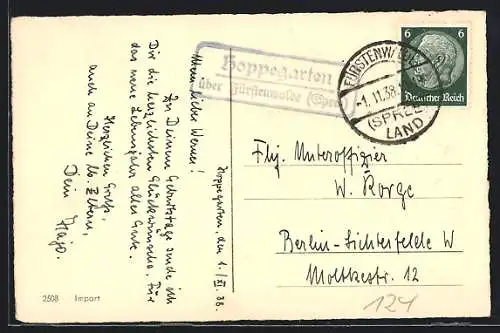 Hoppegarten
über Fürstenwalde (Spree)
FÜRSTENWALDE
-1.11.38.
(SPREE)
LAND
6 6
Deutsches Reich
Hoppegarten, den 1./XI. 38.
Mein lieber Werner!
Zu Deinem Geburtstage sende ich
Dir die herzlichsten Glückwünsche. Für
das neue Lebensjahr alles Gute.
Herzlichen Gruß,
auch an Deine lb. Eltern,
Dein Hajo.
Flg. Unteroffizier
W. Korge
Berlin-Lichterfelde W
Moltkestr. 12
124
2508 Import